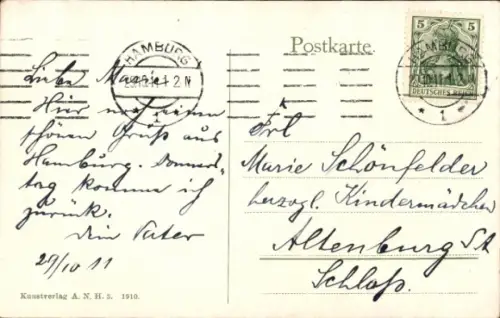 Postkarte.
5 5
DEUTSCHES REICH
HAMBURG
29.10.11. 1-2 N
HAMBURG
* 1 *
Liebe Marie!
Hier noch einen
schönen Gruß aus
Hamburg. Donners-
tag komme ich
zurück.
Dein Vater
29/10 11
Frl
Marie Schönfelder
herzogl. Kindermädchen
Altenburg S.A
Schloß.
Kunstverlag A. N. H. 5. 1910.